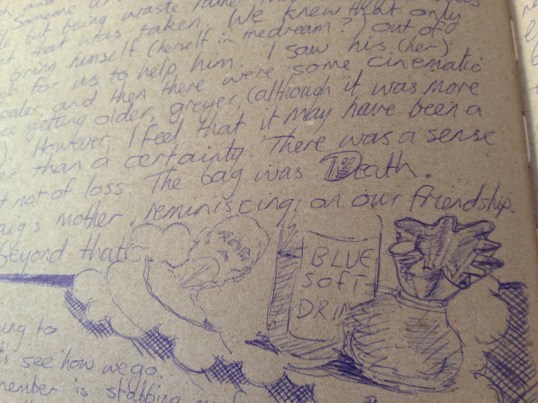 Someone
but being waste
that was taken. We knew that only
bring himself (herself in the dream?) out of
for us to help him. I saw his (her)
and then there were some cinematic
getting older, greyer, (although it was more
However, I feel that it may have been a
than a certainty. There was a sense
not of loss. The bag was Death.
mother, reminiscing; on our friendship.
Beyond that
BLUE
SOFT
DRIN
to
see how we go.
is stabbing